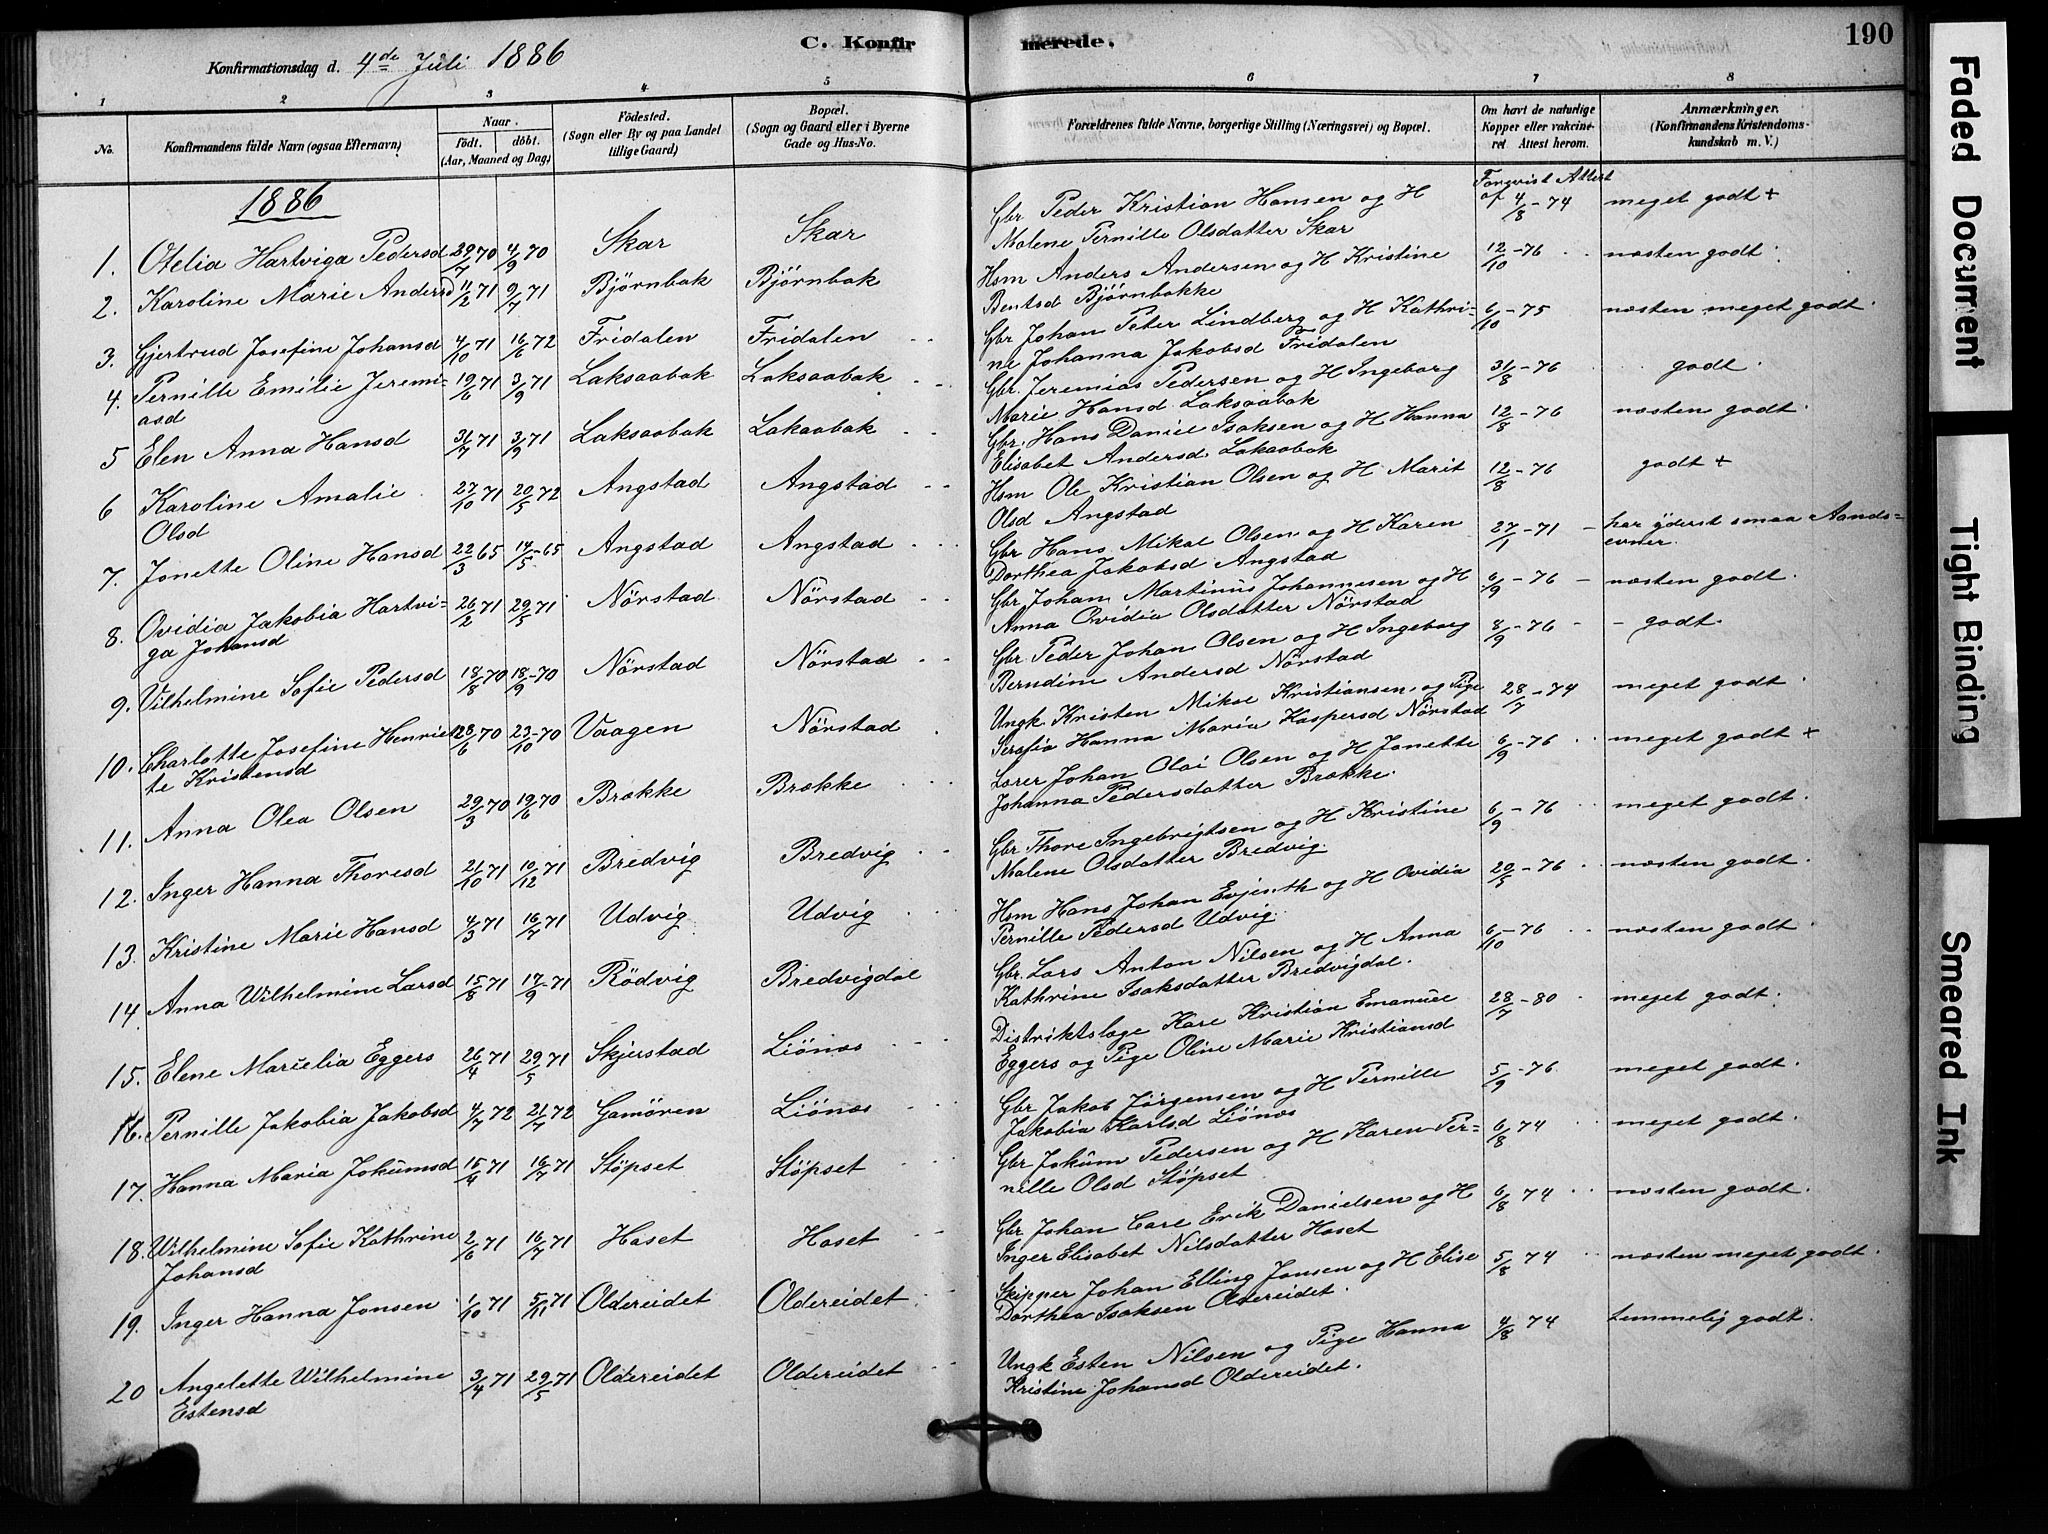 190
C. Konfirmerede.
Konfirmationsdag d. 4de Juli 1886
1 2 3 4 5 6 7 8
No.
Konfirmandens fulde Navn (ogsaa Efternavn)
Naar
født. døbt.
(Aar, Maaned og Dag)
Fødested.
(Sogn eller By og paa Landet
tillige Gaard)
Bopæl.
(Sogn og Gaard eller i Byerne
Gade og Hus-No.
Forældrenes fulde Navne, borgerlige Stilling (Næringsvei) og Bopæl.
Om havt de naturlige
Kopper eller vakcine-
ret Attest herom.
Anmærkninger.
(Konfirmandens Kristendoms-
kundskab m. V.)
1886
1. Otelia Hartviga Pedersd 29/7 70 4/9 70 Skar Skar Gbr Peder Kristian Hansen og H Forqvist Attest af 4/8 - 74 meget godt +
Malene Pernille Olsdatter Skar
2. Karoline Marie Andersd 11/2 71 9/7 71 Bjørnbak Bjørnbak Hsm Anders Andersen og H Kristine 12/10 - 76 næsten godt.
Bentsd Bjørnbakke
3. Gjertrud Josefine Johansd 4/10 71 16/6 72 Fridalen Fridalen Gbr Johan Peter Lindberg og H Kathri- 6/10 - 75 næsten meget godt.
ne Johanna Jakobsd Fridalen
4. Pernille Emilie Jeremi- 19/6 71 3/9 71 Laksaabak Laksaabak Gbr. Jeremias Pedersen og H Ingeborg 31/8 - 76 godt.
asd Marie Hansd. Laksaabak
5 Elen Anna Hansd 31/7 71 3/9 71 Laksaabak Laksaabak Gbr. Hans Daniel Isaksen og H Hanna 12/8 - 76 næsten godt.
Elisabet Andersd. Laksaabak
6 Karoline Amalie 27/10 71 20/5 72 Angstad Angstad Hsm Ole Kristian Olsen og H. Marit 12/8 - 76 godt +
Olsd Olsd Angstad
7. Jonette Oline Hansd 22/3 65 14/5 - 65 Angstad Angstad Gbr Hans Mikal Olsen og H Karen 27/1 - 71 - har yderst smaa Aands-
Dorthea Jakobsd Angstad evner.
8. Ovidia Jakobia Hartvi- 26/2 71 29/5 71 Nörstad Nörstad Gbr Johan Martinus Johannesen og H 6/9 - 76 - næsten godt.
ga Johansd Anna Ovidia Olsdatter Nörstad
9. Vilhelmine Sofie Pedersd 18/8 70 18/9 - 70 Nörstad Nörstad Gbr. Peder Johan Olsen og H Ingeborg 8/9 - 76 - - godt.
Berndine Andersd Nörstad
10. Charlotte Josefine Henriet- 28/6 70 23/10 - 70 Vaagen Nörstad Ungk. Kristen Mikal Kristiansen og Pige 28/7 - 74 meget godt.
te Kristensd Serafia Hanna Maria Kaspersd Nörstad
11. Anna Olea Olsen 29/3 70 19/6 70 Brække Brække Lærer Johan Olai Olsen og H Jonette 6/9 - 76 meget godt +
Johanna Pedersdatter Brække.
12. Inger Hanna Thoresd 21/10 71 10/12 71 Bredvig Bredvig Gbr Thore Ingebrigtsen og H Kristine 6/9 - 76 meget godt.
Malene Olsdatter Bredvig.
13. Kristine Marie Hansd 4/3 71 16/7 71 Udvig Udvig Hsm Hans Johan Evjenth og H Ovidia 20/5 - 76 næsten godt.
Pernille Pedersd Udvig.
14 Anna Wilhelmine Larsd 15/8 71 17/9 - 71 Rödvig Bredvigdal Gbr. Lars Anton Nilsen og H Anna 6/10 - 76 næsten godt.
Kathrine Isaksdatter Bredvigdal.
15. Elene Marielia Eggers 26/4 71 29/5 71 Skjerstad Liönæs Distriktslæge Karl Kristian Emanuel 28/7 - 80 meget godt.
Eggers og Pige Oline Marie Kristiansd
16. Pernille Jakobia Jakobsd 4/7 72 21/7 72 Gamören Liönæs Gbr Jakob Jörgensen og H Pernille 5/9 - 76 meget godt.
Jakobia Karlsd Liönæs
17. Hanna Maria Jokumsd 15/4 71 16/7 71 Støpset Støpset Gbr Jokum Pedersen og H Karen Per- 6/8 74 meget godt.
nille Olsd Støpset
18. Wilhelmine Sofie Kathrine 2/6 71 16/7 71 Haset Haset Gbr Johan Carl Erik Danielsen og H 6/8 74 næsten godt.
Johansd Inger Elisabet Nilsdatter Haset
19. Inger Hanna Jonsen 1/10 71 5/11 71 Oldereidet Oldereidet Skipper Johan Elling Jonsen og H Elise 5/8 74 næsten meget godt.
Dorthea Isaksen Oldereidet.
20 Angelette Wilhelmine 3/4 71 29/5 71 Oldereidet Oldereidet Ungk Esten Nilsen og Pige Hanna 4/8 74 temmelig godt.
Estensd Kristine Johansd Oldereidet.
Faded Document
Tight Binding
Smeared Ink